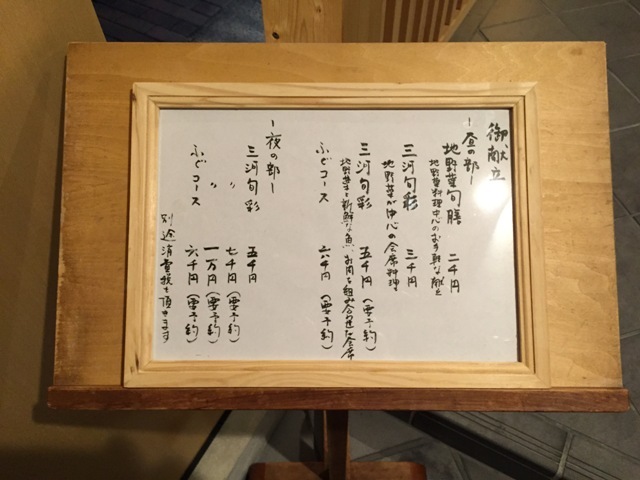 御献立
-昼の部-
地野菜旬膳 二千円
地野菜料理中心のお手軽な献立
三河旬彩 三千円
地野菜が中心の会席料理
三河旬彩 五千円(要予約)
地野菜と新鮮な魚、お肉を組み合わせた会席
ふぐコース 六千円(要予約)
-夜の部-
三河旬彩 五千円
〃 七千円(要予約)
〃 一万円(要予約)
ふぐコース 六千円(要予約)
別途消費税を頂きます